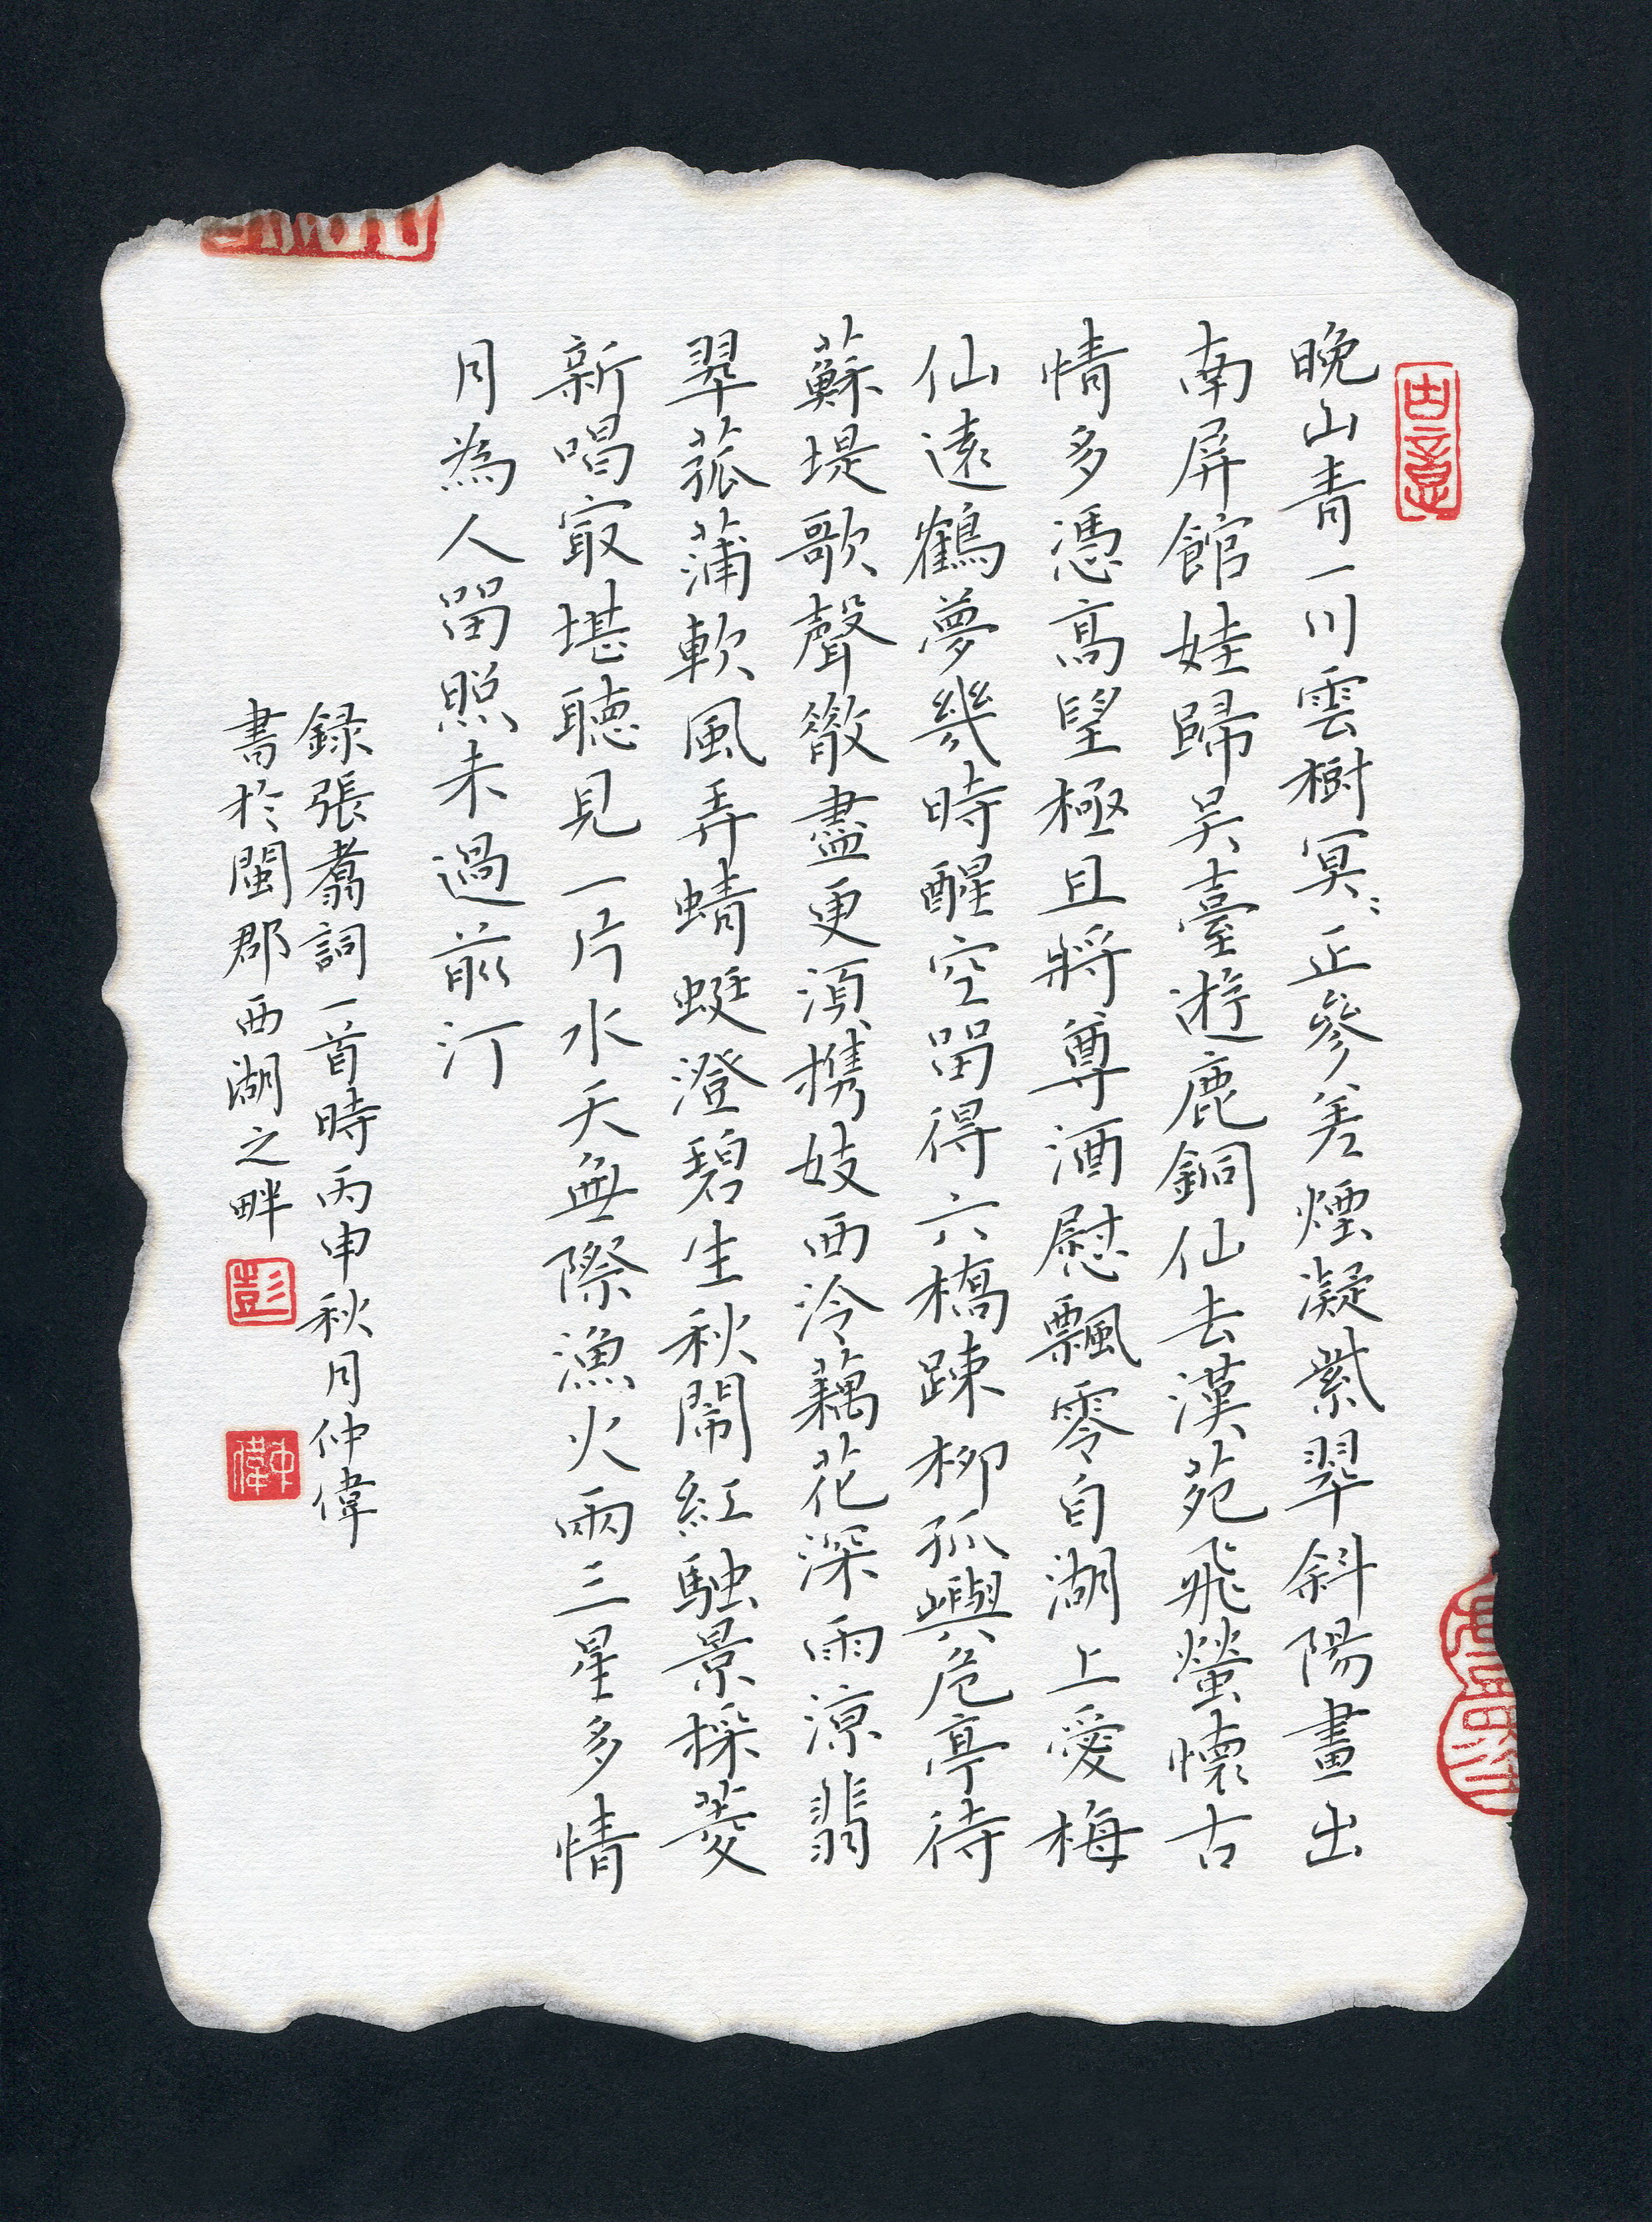 晚山青一川雲樹冥〻正參差煙凝紫翠斜陽畫出
南屏館娃歸吴臺遊鹿銅仙去漢苑飛螢懷古
情多憑高望極且將尊酒慰飄零自湖上愛梅
仙遠鶴夢幾時醒空留得六橋踈柳孤嶼危亭待
蘇堤歌聲散盡更須携妓西泠藕花深雨涼翡
翠菰蒲軟風弄蜻蜓澄碧生秋鬧紅駐景採菱
新唱最堪聽見一片水天無際漁火兩三星多情
月為人留照未過前汀
録張翥詞一首時丙申秋月仲偉
書於閩郡西湖之畔
彭
仲偉